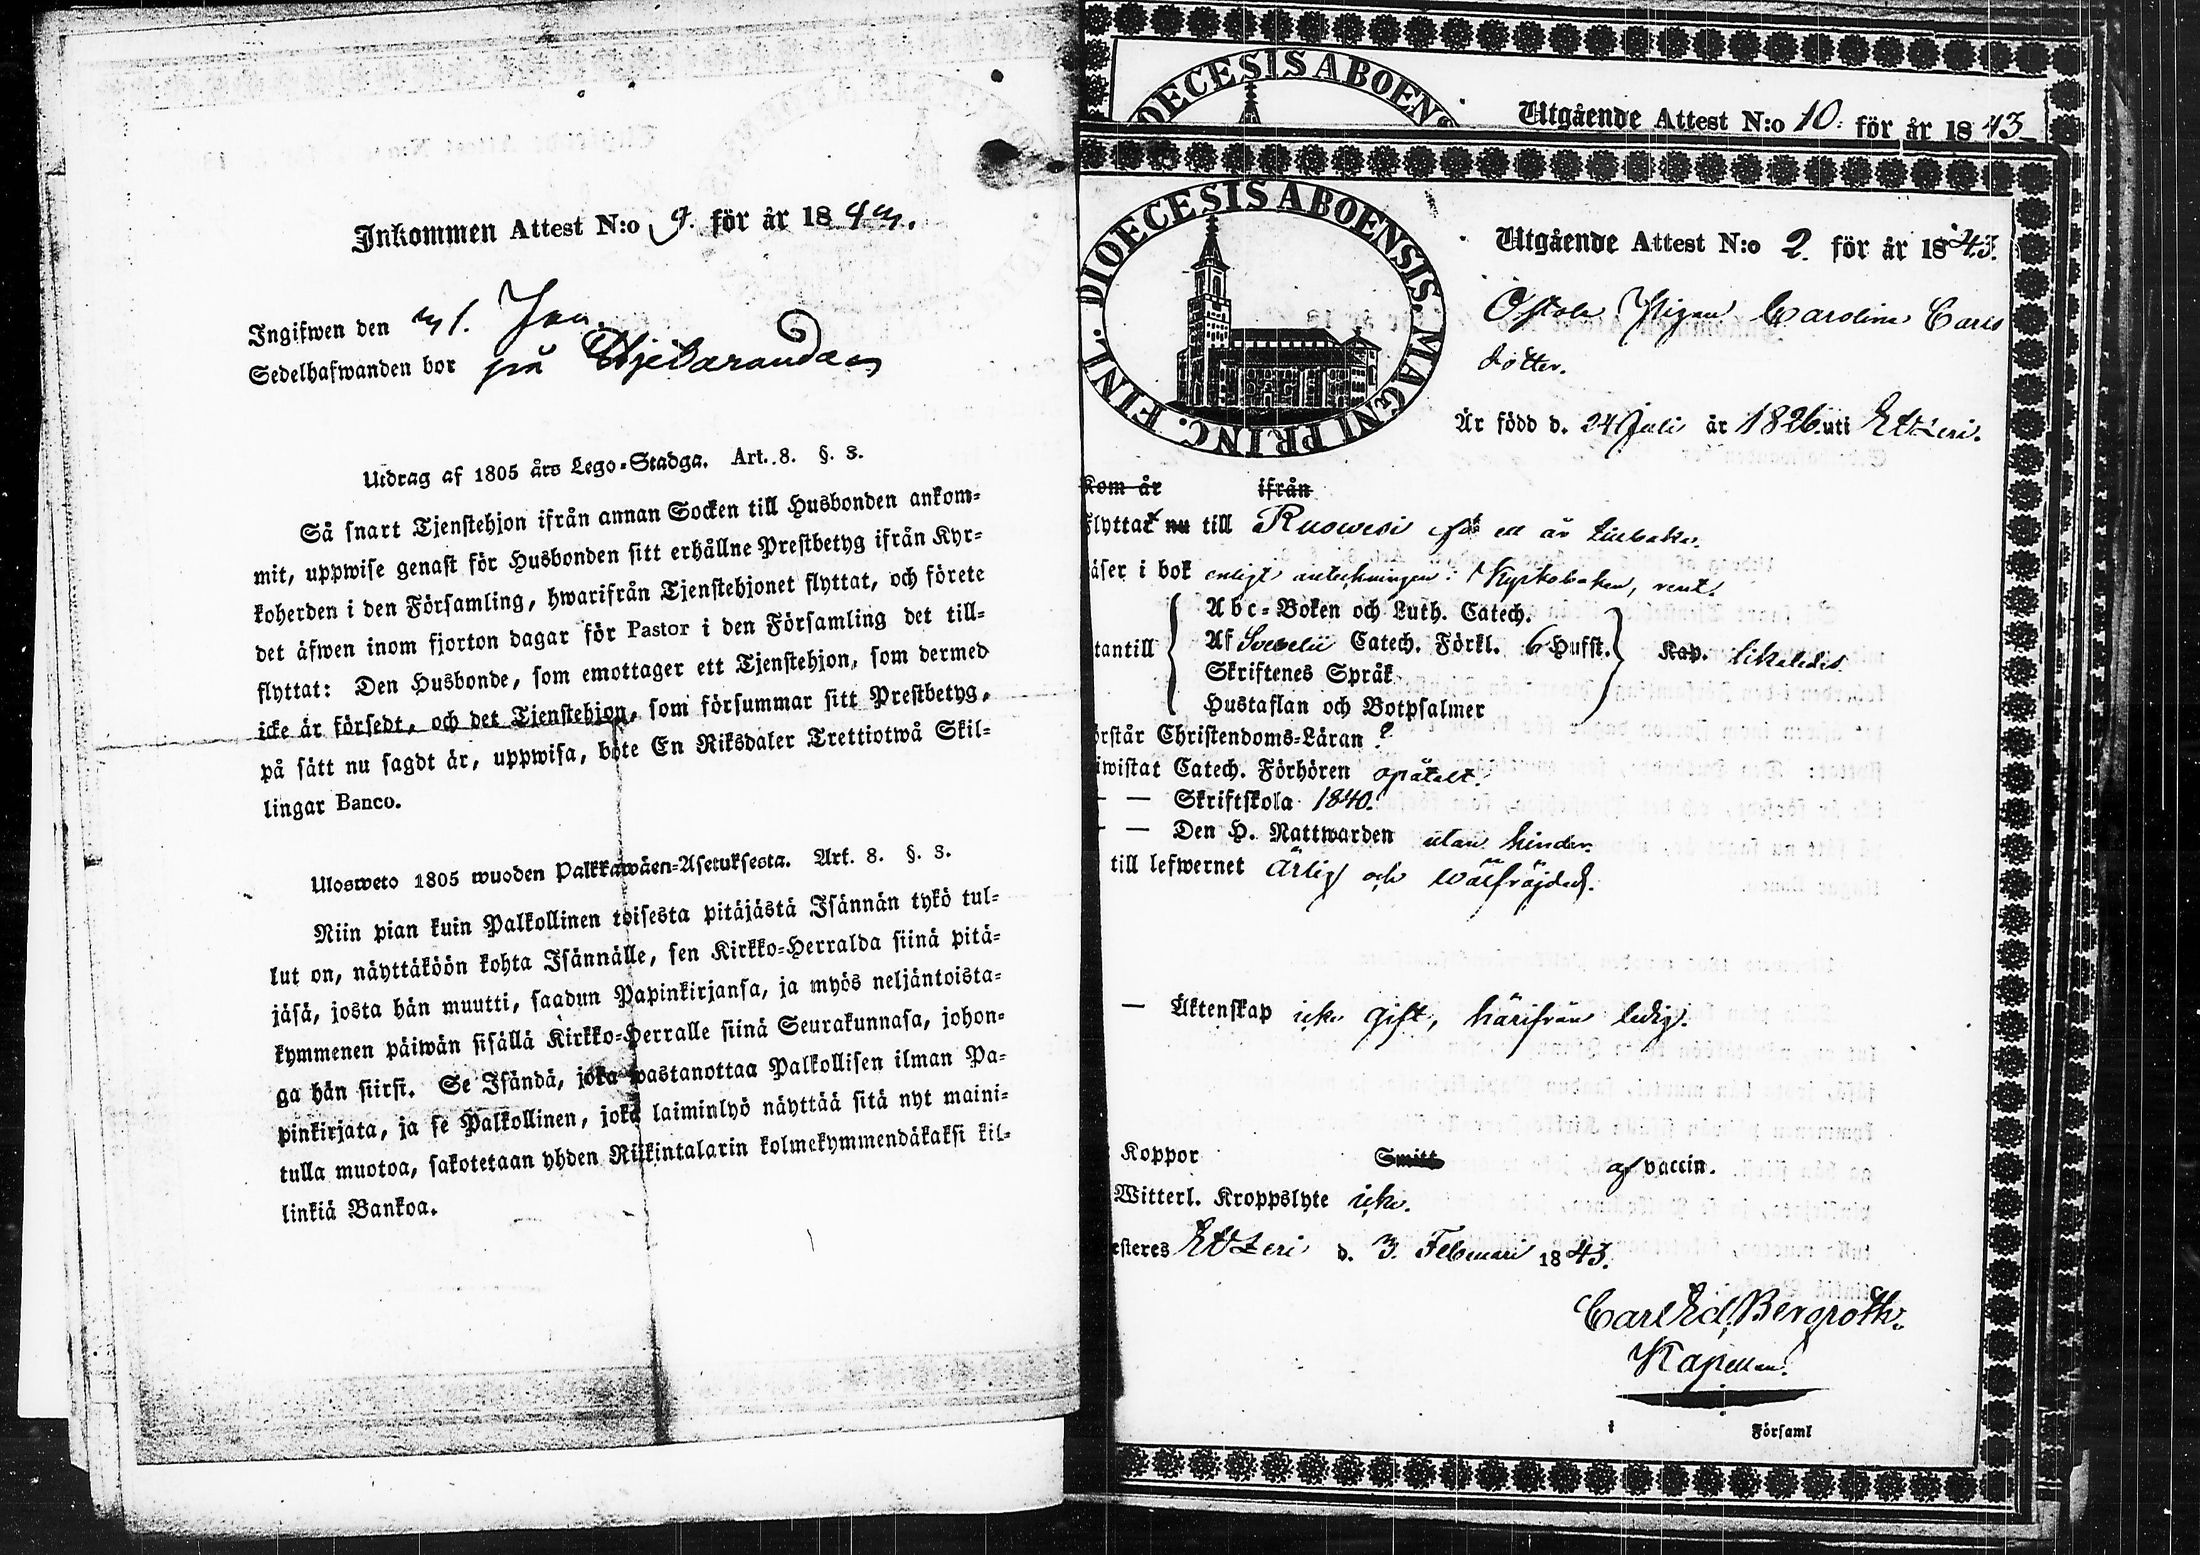 Inkommen Attest N:o 9. för år 1843.
Ingifwen den
Sedelhafwanden bor på
Utdrag af 1805 års Lego-Stadga. Art. 8. §. 3.
Så snart Tjenstehjon ifrån annan Socken till Husbonden ankom-
mit, uppwise genast för Husbonden sitt erhållne Prestbetyg ifrån Kyr-
koherden i den Församling, hwarifrån Tjenstehjonet flyttat, och förete
det äfwen inom fjorton dagar för Pastor i den Församling det till-
flyttat: Den Husbonde, som emottager ett Tjenstehjon, som dermed
icke är försedt, och det Tjenstehjon, som försummar sitt Prestbetyg,
på sätt nu sagdt är, uppwisa, böte En Riksdaler Trettiotwå Skil-
lingar Banco.
Ulosweto 1805 wuoden Palkkawäen-Asetuksesta. Art. 8. §. 3.
Niin pian kuin Palkollinen toisesta pitäjästä Isännän tykö tul-
lut on, näyttäköön kohta Isännälle, sen Kirkko-Herralda siinä pitä-
jäsä, josta hän muutti, saadun Papinkirjansa, ja myös neljäntoista-
kymmenen päiwän sisällä Kirkko-Herralle siinä Seurakunnasa, johon-
ga hän siirsi. Se Isändä, joka wastanottaa Palkollisen ilman Pa-
pinkirjata, ja se Palkollinen, joka laiminlyö näyttää sitä nyt maini-
tulla muotoa, sakotetaan yhden Riikintalarin kolmekymmendäkaksi kil-
linkiä Bankoa.
DIOECESIS ABOENS
Utgående Attest N:o 10. för år 1843
DIOECESIS ABOENSIS. MAGNI PRINC. FINL.
Utgående Attest N:o 2. för år 1843.
Pigan Carolina Carls
dotter.
Är född d. 24 Juli år 1826 uti Etzeri.
Kom år ifrån
Flyttat nu till Ruowesi för ett år tillbaka.
äser i bok enligt anteckningen i Kyrkoboken, rent.
Abc-Boken och Luth. Catech.
tantill Af Svebelii Catech. Förkl. 6 Hufst. Kap. likaledes
Skriftenes Språk
Hustaflan och Botpsalmer
örstår Christendoms-Läran ?
iwistat Catech. Förhören opåtalt.
— — Skriftskola 1840.
— — Den H. Nattwarden utan hinder.
till lefwernet ärlig och wälfräjdad.
— Äktenskap icke gift, härifrån ledig.
Koppor Smitt af vaccin.
Witterl. Kroppslyte icke.
esteres Etzeri d. 3. Februari 1843.
Carl Ed. Bergroth.
Kapellan.
i Församl